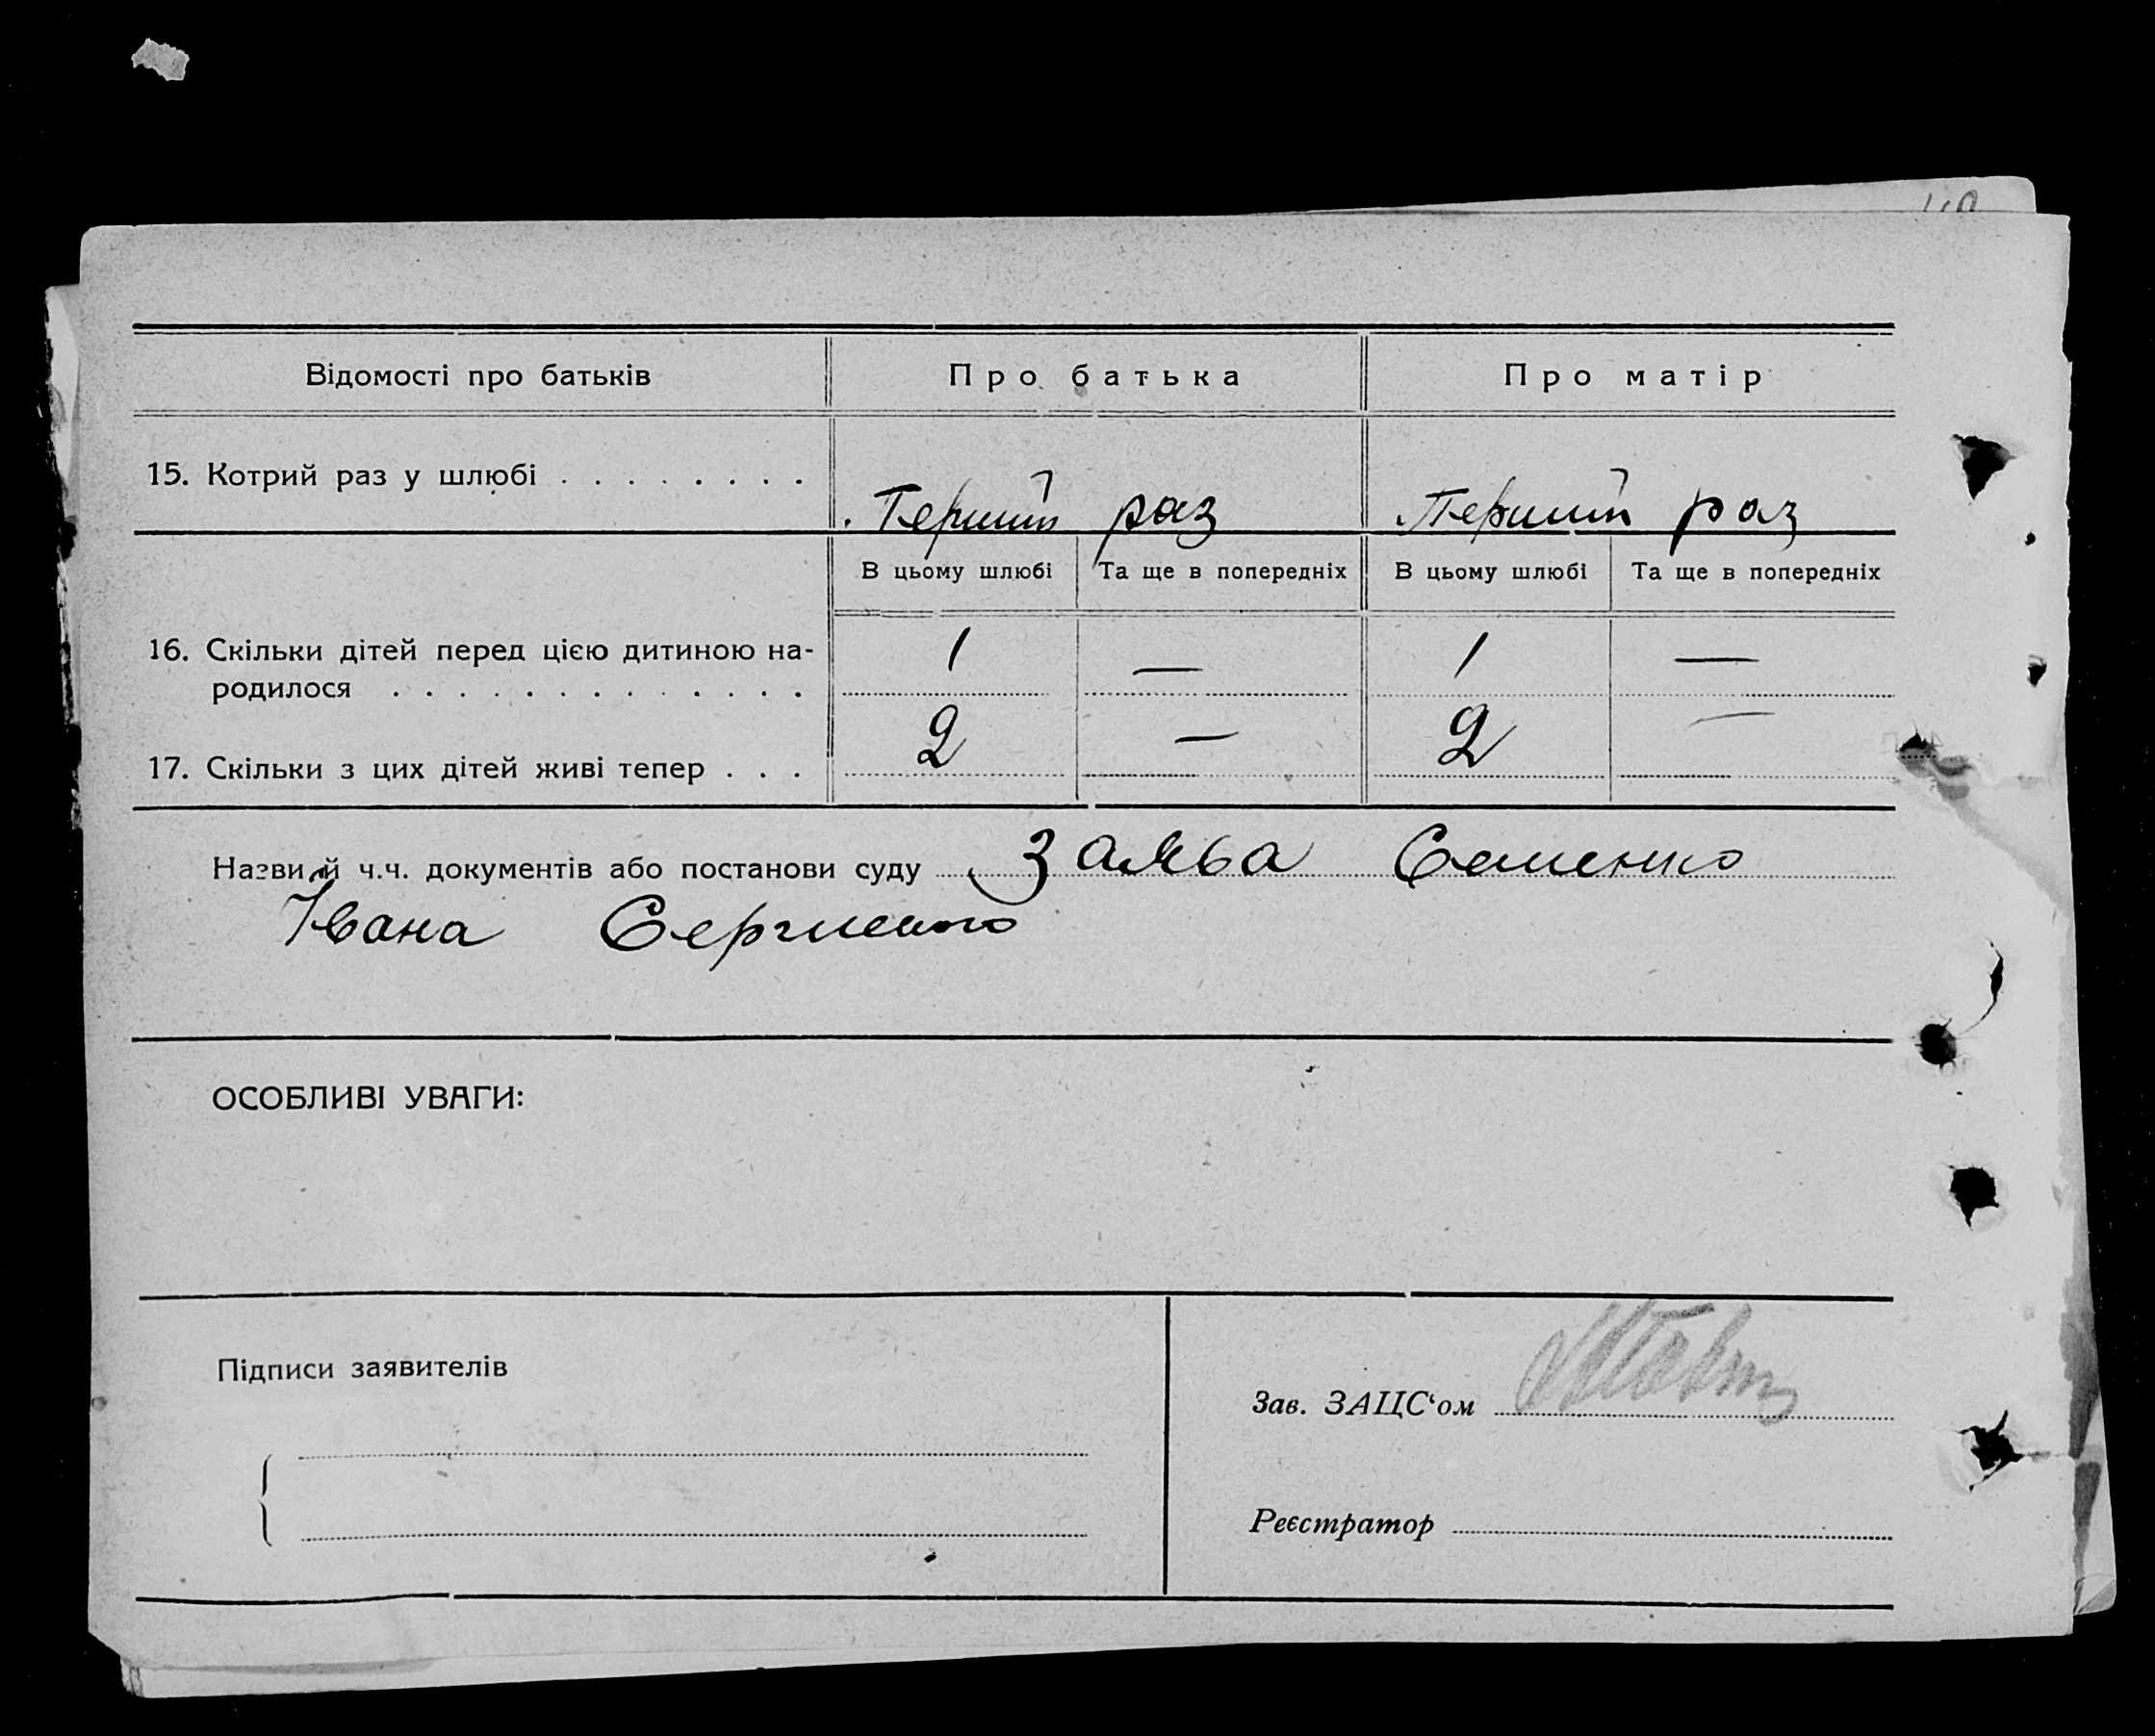 Відомості про батьків
Про батька
Про матір
15. Котрий раз у шлюбі . . . . . . . .
Перший раз
Перший раз
В цьому шлюбі
Та ще в попередніх
В цьому шлюбі
Та ще в попередніх
16. Скільки дітей перед цією дитиною на-
родилося . . . . . . . . . . . . .
1
—
1
—
17. Скільки з цих дітей живі тепер . . .
2
—
2
—
Назви й ч.ч. документів або постанови суду Заява Семенко
Івана
ОСОБЛИВІ УВАГИ:
Підписи заявителів
Зав. ЗАЦС‘ом
Реєстратор